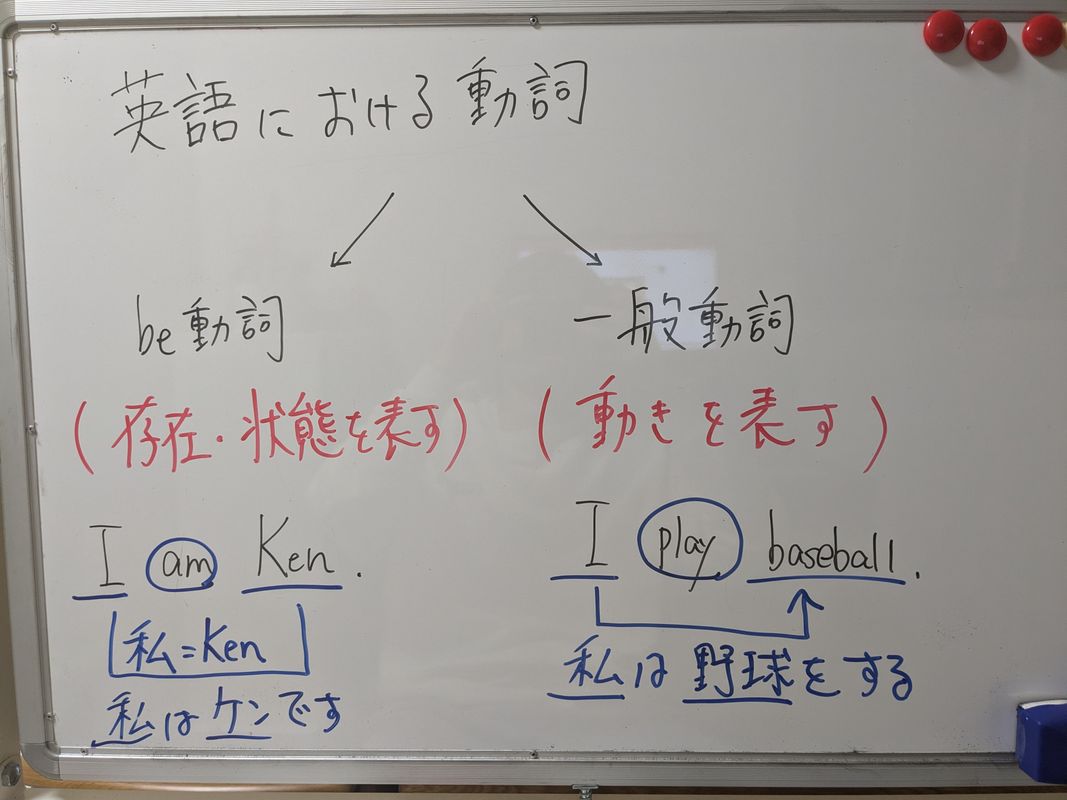 英語における動詞
be動詞
(存在・状態を表す)
I am Ken.
私=Ken
私はケンです
一般動詞
(動きを表す)
I play baseball.
私は野球をする